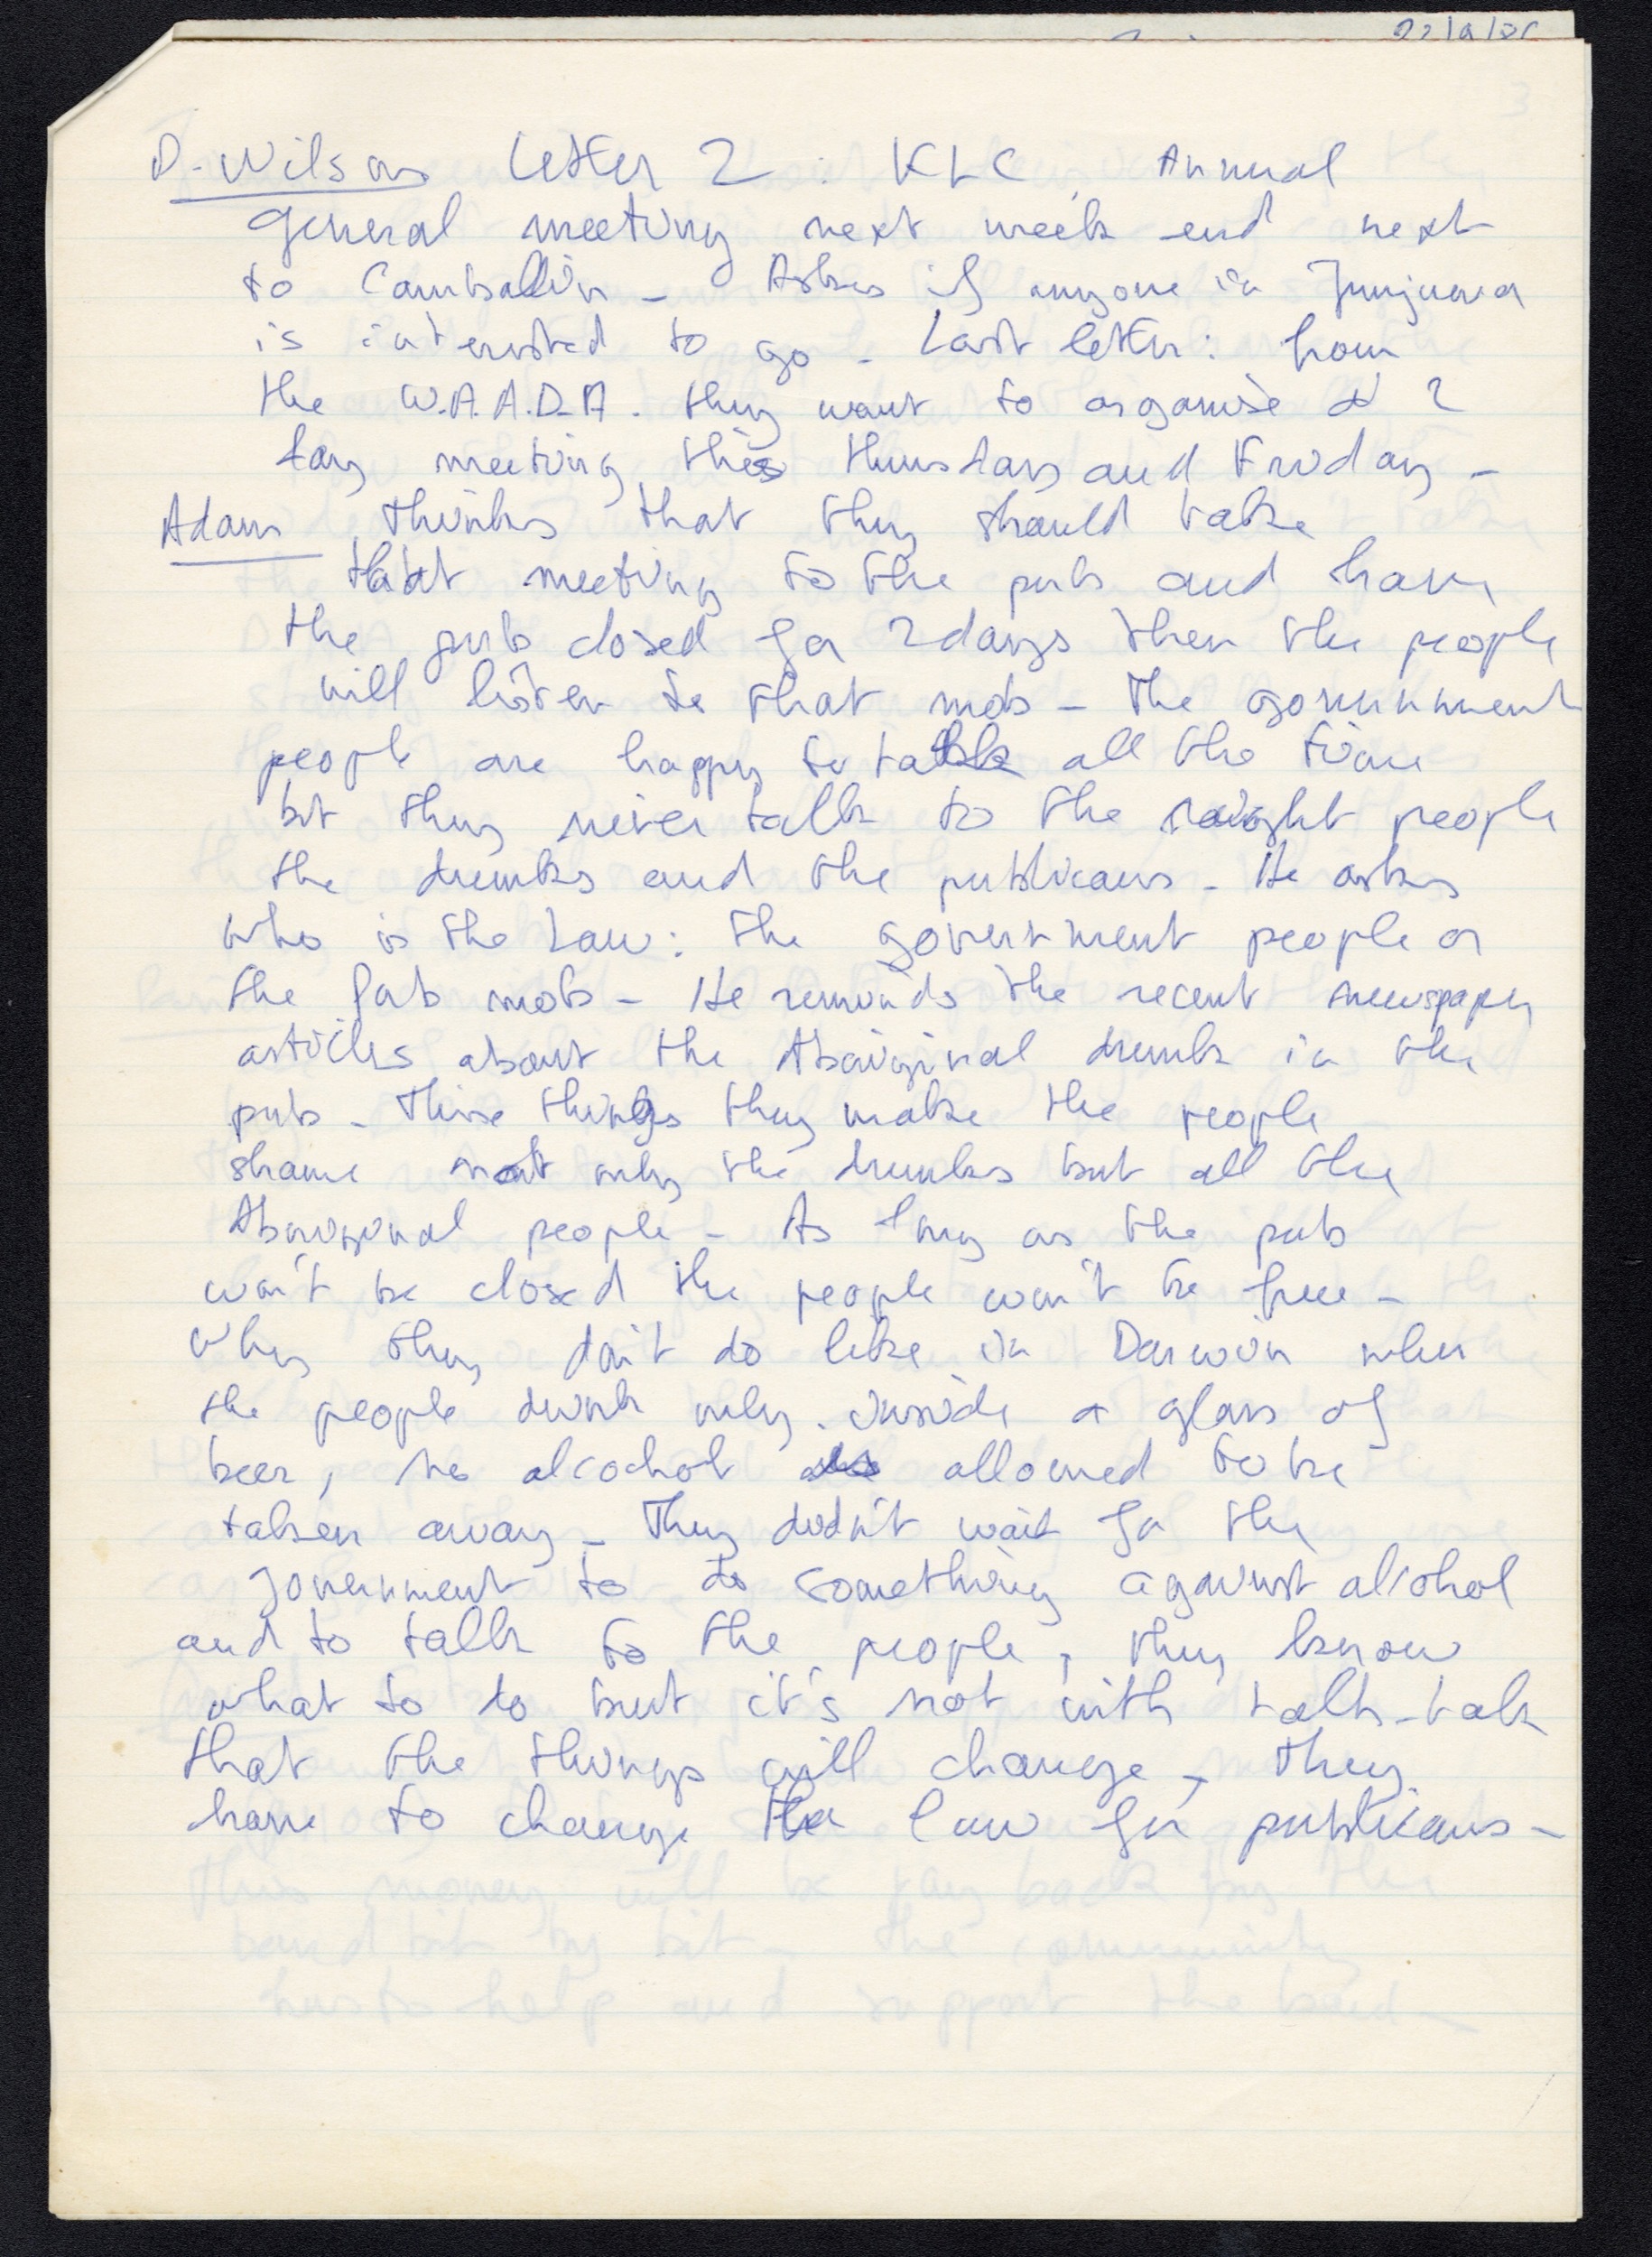 D. Wilson letter 2 : KLC Annual
general meeting next week end next
to Camballin - Askes if anyone in Junjuwa
is interested to go - Last letter : from
the W.A.A.D.A. they want to organise a 2
day meeting this thursday and Friday -
Adam thinks that they should take
that meeting to the pub and have
the pub closed for 2 days then the people
will listen to that mob - The government
people are happy to talk all the time
but they never talk to the right people
the drunks and the publicans - He askes
who is the Law : the government people or
the Pub mob - He reminds the recent newspaper
articles about the Aboriginal drunk in the
pub - These things they make the people
shame not only the drunks but all the
Aboriginal people - As long as the pub
won't be closed the people won't be free -
Why they don't do like in Darwin when
the people drink only inside a glass of
beer, no alcochol allowed to be
taken away - They didn't wait for the
government to do something against alcohol
and to talk to the people, they know
what to do but it's not with talk-talk
that the things will change, they
have to change the law for publicans -